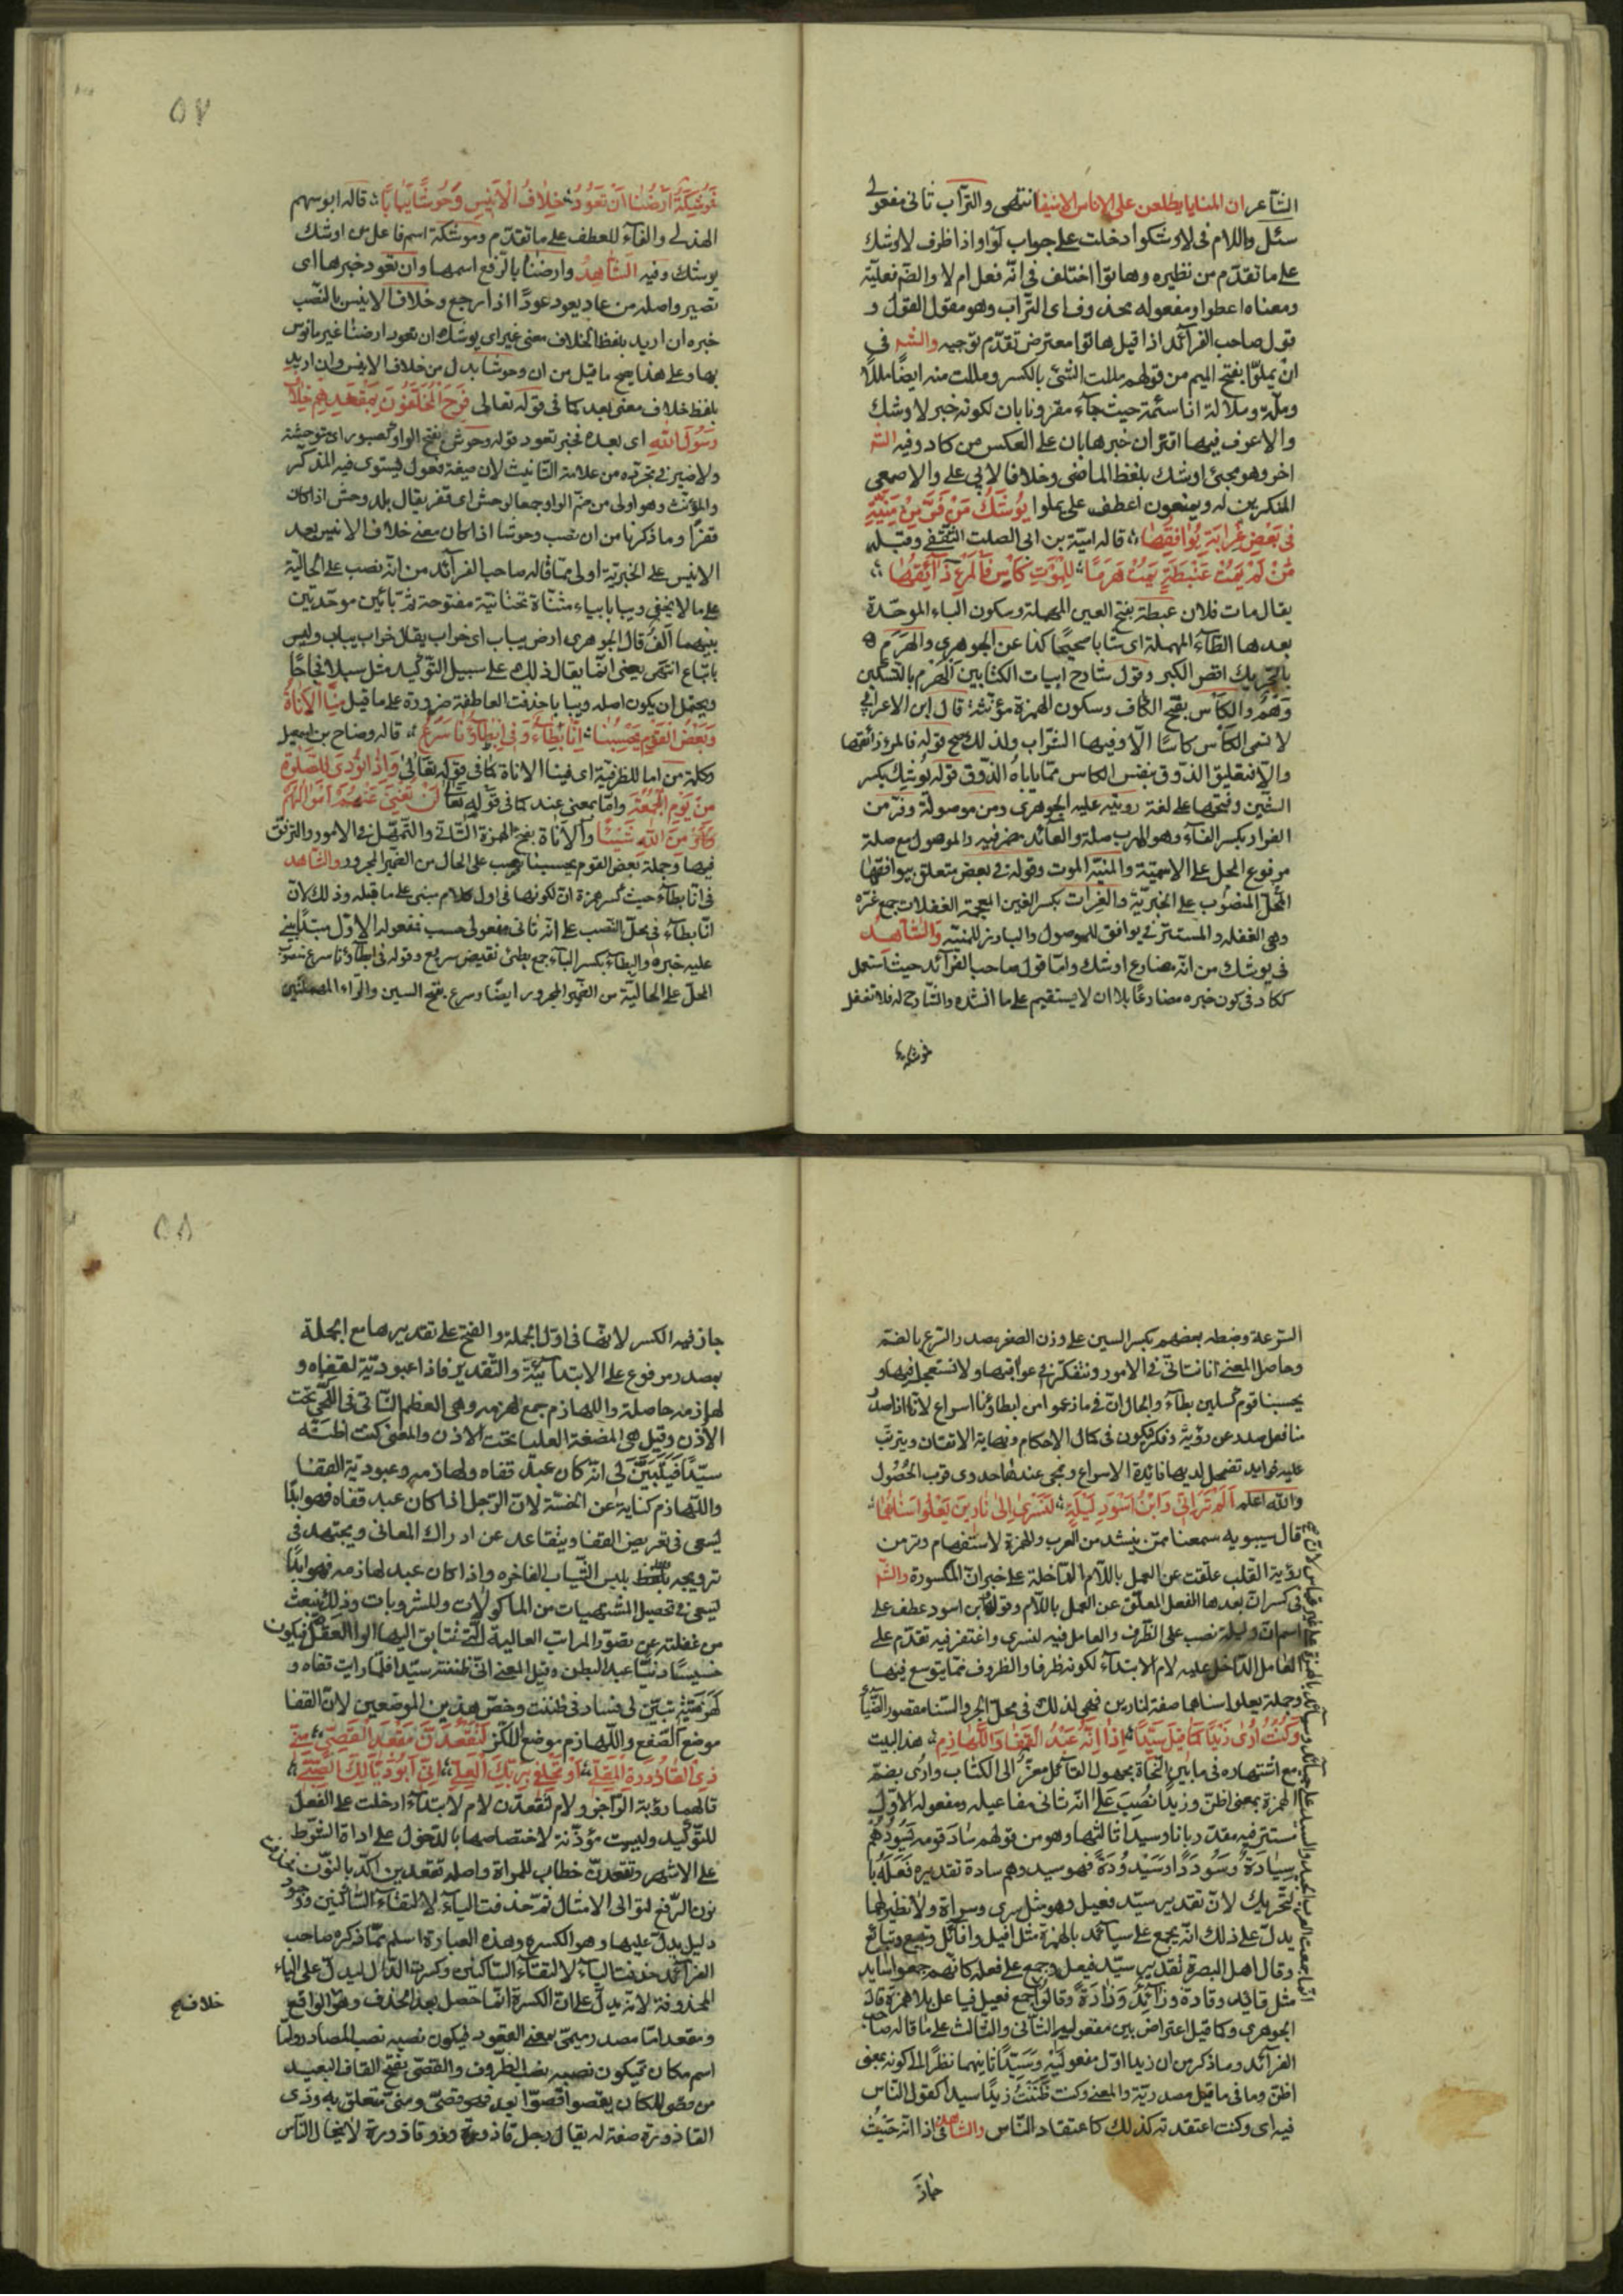 الشاعر ان المنايا يطلعن على الاناس الآمنينا انتهى والتراب ثانى مفعولى
سئل واللام فى لاوشكوا دخلت على جواب لو واذا ظرف لاوشك
على ما تقدّم من نظيره وهاتوا اختلف فى انّه فعل ام لا والضم فعليّة
ومعناه اعطوا ومفعوله محذوف اى التراب وهو مقول القول و
قول صاحب الفرآئد اذا قيل هاتوا معترض تقدّم توجيهه والشه فى
ان يملّوا بفتح الميم من قولهم مللت الشئ بالكسر ومللت منه ايضًا مللًا
وملّة وملالة اذا سئمته حيث جآء مقرونا بان لكونه خبر لاوشك
والاعرف فيهما اقتران خبرها بان على العكس من كاد وفيه الشه
اخر وهو مجئ اوشك بلفظ الماضى وخلافا لابى على والاصمعى
المنكرين له ويمنعون اعطف على يملوا يُوشِكُ مَنْ فَرَّ مِنْ مَنِيَّتِهِ
فى بَعْضِ غِرَّاتِهِ يُوافِقُهَا قاله اميّة بن ابى الصلت الثقفى وقبله
مَنْ لَمْ يَمُتْ عَبْطَةً يَمُتْ هَرَمًا لِلْمَوْتِ كَأْسٌ فَالْمَرْءُ ذَآئِقُهَا
يقال مات فلان عبطة بفتح العين المهملة وسكون الباء الموحّدة
بعدها الطآء المهملة اى شابا صحيحًا كذا عن الجوهرى والهَرَم
بالتحريك اقصى الكبر وقول شارح ابيات الكتابين الهرم بالتسكين
وَهْمٌ والكأس بفتح الكاف وسكون الهمزة مؤنّثة قال ابن الاعرابى
لا تسمى الكأس كاسًا الّا وفيها الشراب ولذلك صح قوله فالمرء ذائقها
والّا فتعليق الذوق بنفس الكاس ممّا ياباهُ الذوق قوله يوشك بكسر
الشين وفتحها على لغة رويئه عليه الجوهرى ومن موصولة وفرّ من
الفرار بكسر الفآء وهو الهرب صلة والعائد مضمر فيه والموصول مع صلة
مرفوع المحل على الاسمية والمنيّة الموت وقوله فى بعض متعلق بيوافقها
المحلّ المنصوب على الخبريّة والغِرات بكسر الغين المعجمة الغفلات جمع غرّه
وهى الغفلة والمستتر فى يوافق للموصول والبارز للمنيّه والشّاهد
فى يوشك من انّه مضارع اوشك وامّا قول صاحب الفرآئد حيث استعمل
ككاد فى كون خبره مضارعًا بلا ان لا يستقيم على ما انشده والشارح له فلا تغفل
فَمُوشِكَةٌ اَرْضُنَا اَنْ تَعُودَ خِلَافَ الْاَنِيسِ وَحُوشًا يَبَابًا قاله ابو سهم
الهذلى والفآء للعطف على ما تقدّم وموشكة اسم فاعل من اوشك
يوشك وفيه الشّاهدُ وارضنا بالرّفع اسمها وان تعود خبرها اى
تصير واصله من عاد يعود عودًا اذا رجع وخلاف الانيس بالنّصب
خبره ان اريد بلفظ الخلاف معنى غير اى يوشك ان تعود ارضنا غير مأنوس
بها وعلى هذا يصح ما قيل من ان وحوشا بدل من خلاف الانيس وان اريد
بلفظ خلاف معنى بعد كما فى قوله تعالى فَرِحَ الْمُخَلَّفُونَ بِمَقْعَدِهِمْ خِلَافَ
رَسُولِ اللّٰهِ اى بعده فخبر تعود قوله وحوش بفتح الواو كصبور اى متوحشة
ولا ضير فى تجرّده من علامة التأنيث لان صيغة فعول يستوى فيه المذكّر
والمؤنّث وهو اولى من ضم الواو جمعا لوحش اى قفر يقال بلد وحش اذا كان
قفرًا وما ذكرنا من ان نصب وحوشا اذا كان معنى خلاف الانيس بعد
الانيس على الخبريّة اولى ممّا قاله صاحب الفرآئد من انّه نصب على الحاليّة
على ما لا يخفى ويبابا بياء مثنّاة تحتانيّة مفتوحة ثمّ بائين موحّدتين
بينهما الف قال الجوهرى ارض يباب اى خراب يقال خراب يباب وليس
باتباع انتهى يعنى انّما يقال ذلك على سبيل التّوكيد مثل سبلا فجاجًا
ويحتمل ان يكون اصله ويبابا حذفت العاطفة ضرورة على ما قيل مِنَّا الْاَنَاةُ
وَبَعْضُ الْقَوْمِ يَحْسِبُنَا اِنَّا بِطَآءٌ وَفِى اِبْطَآئِنَا سَرَعُ قاله وضاح بن اسمعيل
وكلمة من اما للظرفيّة اى فينا الاناة كما فى قوله تعالى وَاِذَا نُودِىَ لِلصَّلٰوةِ
مِنْ يَوْمِ الْجُمُعَةِ وامّا بمعنى عند كما فى قوله تعا لَنْ تُغْنِىَ عَنْهُمْ اَمْوَالُهُمْ
مِنَ اللّٰهِ شَيْئًا والاَناة بفتح الهمزة التأنّى والتّمهّل فى الامور والترفّق
فيها وجملة بعض القوم يحسبنا نصب على الحال من الضمير المجرور والشّاهد
فى انّا بطآء حيث كسر همزة انّ لكونها فى اول كلام مبنى على ما قبله وذلك لانّ
انّا بطآء فى محلّ النّصب على انّه ثانى مفعولى حسب فمفعوله الاوّل مبتدأ يبنى
عليه خبره والبطآء بكسر البآء جمع بطئ نقيض سريع وقوله فى ابطآؤنا سرع منصوب
المحلّ على الحاليّة من الضمير المجرور ايضًا وسرع بفتح السين والرّاء المهملتين
السّرعة وضبطه بعضهم بكسر السين على وزن الصغر مصدر السّرع بالضمّ
وحاصل المعنى انا نتأنّى فى الامور ونتفكّر فى عواقبها ولا نستعجل فيها و
يحسبنا قوم كسلين بطآء والحال انّ فى ما زعموا من ابطاؤنا اسراع لانّا اذا صدر
منا فعل صدر عن رؤيّة وفكر فيكون فى كمال الاحكام ونهاية الاتقان ويترتّب
عليه فوايد تضمحل لديها فائدة الاسراع وتمحى عندها جدوى قرب الحُصُول
والله اعلم اَلَمْ تَرَ اَنِّى وَابْنُ اَسْوَدَ لَيْلَةً لَنَسْرِى اِلٰى نَارَيْنِ يَعْلُوا سَنَاهُمَا
قال سيبويه سمعنا ممّن ينشد من العرب والهمزة لاستفهام وتر من
رؤية القلب علّقت عن العمل باللّام الدّاخلة على خبر انّ المكسورة والشّه
فى كسر انّ بعدها الفعل المعلّق عن العمل باللّام وقوله ابن اسود عطف على
اسم انّ وليلة نصب على الظّرف والعامل فيه لنسرى واغتفر فيه تقدّم على
العامل الدّاخل عليه لام الابتدآء لكونه ظرفا والظروف ممّا يتوسع فيها
وجملة يعلوا سناهما صفة لنارين فهى لذلك فى محلّ الجرّ والسّنا مقصور الضّيآء
وَكُنْتُ اُرٰى زَيْدًا كَمَا قِيلَ سَيِّدًا اِذَا اِنَّهُ عَبْدُ الْقَفَا وَاللَّهَازِمِ هذا البيت
مع اشتهاره فى ما بين النّحاة مجهول القآئل معزّو الى الكتاب وارى بضمّ
الهمزة بمعنى اظنّ وزيدًا نصب على انّه ثانى مفاعيله ومفعوله الاوّل
مستتر فيه مقدّر بانا وسيدًا ثالثها وهو من قولهم ساد قومه يَسُودُهُمْ
سِيَادَةً وَسُودَدًا وَسَيْدُودَةً فهو سيد وهم سادة تقديره فَعَلَةٌ با
لتّحريك لانّ تقدير سيّد فعيل وهو مثل سرى وسراة ولا نظير لهما
يدلّ على ذلك انّه يجمع على سيائد بالهمزة مثل افيل وافآئل وتبيع وتبائع
وقال اهل البصرة تقدير سيّد فيعل وجمع على فعلة كانّهم جمعوا سايد
مثل قائد وقادة وذآئد وذادة وقالوا جمع فيعل فياعل بلا همزة قاله
الجوهرى وكما قيل اعتراض بين مفعوليه الثّانى والثّالث على ما قاله صاحب
الفرآئد وما ذكر من ان زيدا اوّل مفعوليه وَسَيِّدًا ثانيهما نظرًا الى كونه بمعنى
اظنّ وما فى ما قيل مصدريّة والمعنى وكنت ظَنَنْتُ زيدًا سيدًا كقول النّاس
فيه اى وكنت اعتقدته كذلك كاعتقاد النّاس والشّاهد فى اذا انّه حيث
جاز
جاز فيه الكسر لانّها فى اوّل الجملة والفتح على تقديرها مع الجملة
بمصدر مرفوع على الابتدآئيّة والتّقدير فاذا عبوديّته لقفاه و
لهازمه حاصلة واللهازم جمع لهزمه وهى العظم النّاتى فى اللّحى تحت
الاذن وقيل هى المضغة العليا تحت الاذن والمعنى كنت اظنّه
سيّدًا فَتَبَيَّنَ لى انّه كان عبد قفاه ولهازمه وعبوديّة القفا
واللّهازم كناية عن الخسّة لانّ الرّجل اذا كان عبد قفاه فهو ابدًا
يسعى فى تعريض القفا ويتقاعد عن ادراك المعانى ويجتهد فى
ترويجه بلبس الثّياب الفاخره واذا كان عبد لهازمه فهو ابدًا
يسعى فى تحصيل المشتهيات من الماكولات والمشروبات وذلك ينبعث
من غفلته عن تصوّر المراتب العالية الّتى يتسابق اليها الوا العقول فيكون
خسيسًا دنيًّا عبد البطن وقيل المعنى انّى ظننته سيّدا فلمّا رايت قفاه و
لَهْزَمَتَيْهِ تبيّن لى فساد فى ظننت وخصّ هذين الموضعين لانّ القفا
موضع الصّفع واللّهازم موضع اللّكز لَتَقْعُدِنَّ مَقْعَدَ الْقَصِىِّ مِنِّى
ذِى الْقَاذُورَةِ الْمَقْلِىِّ اَوْ تَحْلِفِى بِرَبِّكِ الْعَلِىِّ اَنِّى اَبُو ذَيَّالِكِ الصَّبِىِّ
قالهما رؤبة الرّاجز ولام لتقعدنّ لام الابتدآء ادخلت على الفعل
للتّوكيد وليست مؤذّنة لاختصاصها بالدّخول على اداة الشّرط
على الاشهر وتقعدنّ خطاب للمراة واصله تقعدين اكّد بالنّون
نون الرّفع لتوالى الامثال ثمّ حذفت الياء لالتقآء السّاكنين ووجود
دليل يدلّ عليها وهو الكسرة وهذه العبارة اسلم ممّا ذكره صاحب
الفرآئد حذفت اليآء لالتقآء السّاكنين وكسرت الدّال ليدلّ على الياء
المحذوفة لانّه يدلّ على انّ الكسرة انّما حصل بعد الحذف وهو خلاف الواقع
ومقعد امّا مصدر ميمىّ بمعنى القعود فيكون نصبه نصب المصادر وامّا
اسم مكان فيكون نصبه نصب الظّروف والقصىّ بفتح القاف البعيد
من قصى المكان يقصو قصوًّا بعد فهو قصىّ ومنّى متعلّق به وذى
القاذورة صفة له يقال رجل قاذورة وذو قاذورة لا يخال النّاس